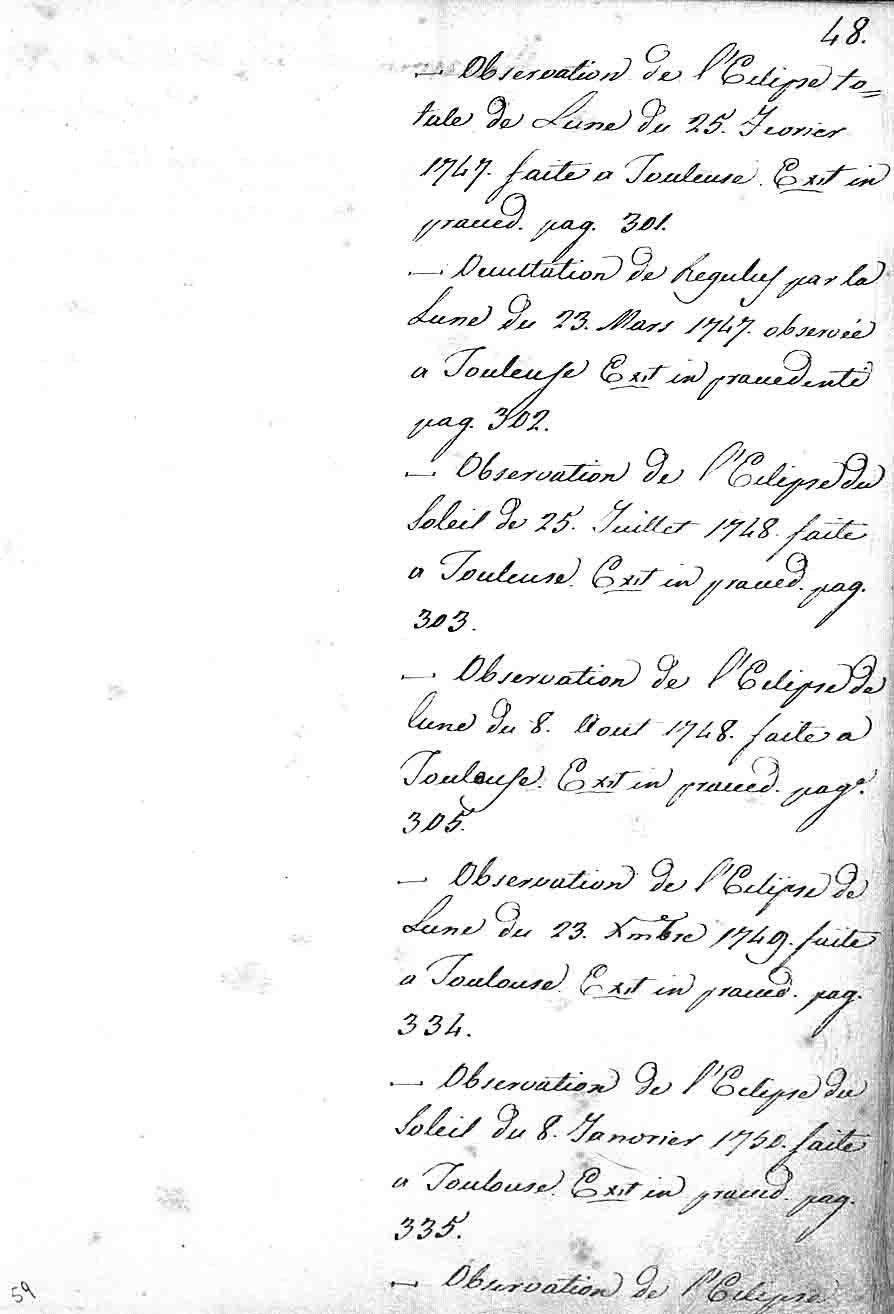 48.
— Observation de l'Eclipse to=
tale de Lune du 25. Fevrier
1747. faite a Touleuse. Exit in
praeced. pag. 301.
— Occultation de Regulus par la
Lune du 23. Mars 1747. observée
a Touleuse Exit in praecedenté
pag. 302.
— Observation de l'Eclipse du
Soleil de 25. Juillet 1748. faite
a Touleuse. Exit in praeced. pag.
303.
— Observation de l'Eclipse de
lune du 8. Aout 1748. faite a
Toulouse. Exit in praeced. pag.ª
305.
— Observation de l'Eclipse de
Lune du 23. Xmbre 1749. faite
a Toulouse. Exit in praeced. pag.
334.
— Observation de l'Eclipse du
Soleil du 8. Janvrier 1750. faite
a Toulouse. Exit in praeced. pag.
335.
— Observation de l'Eclipse
59